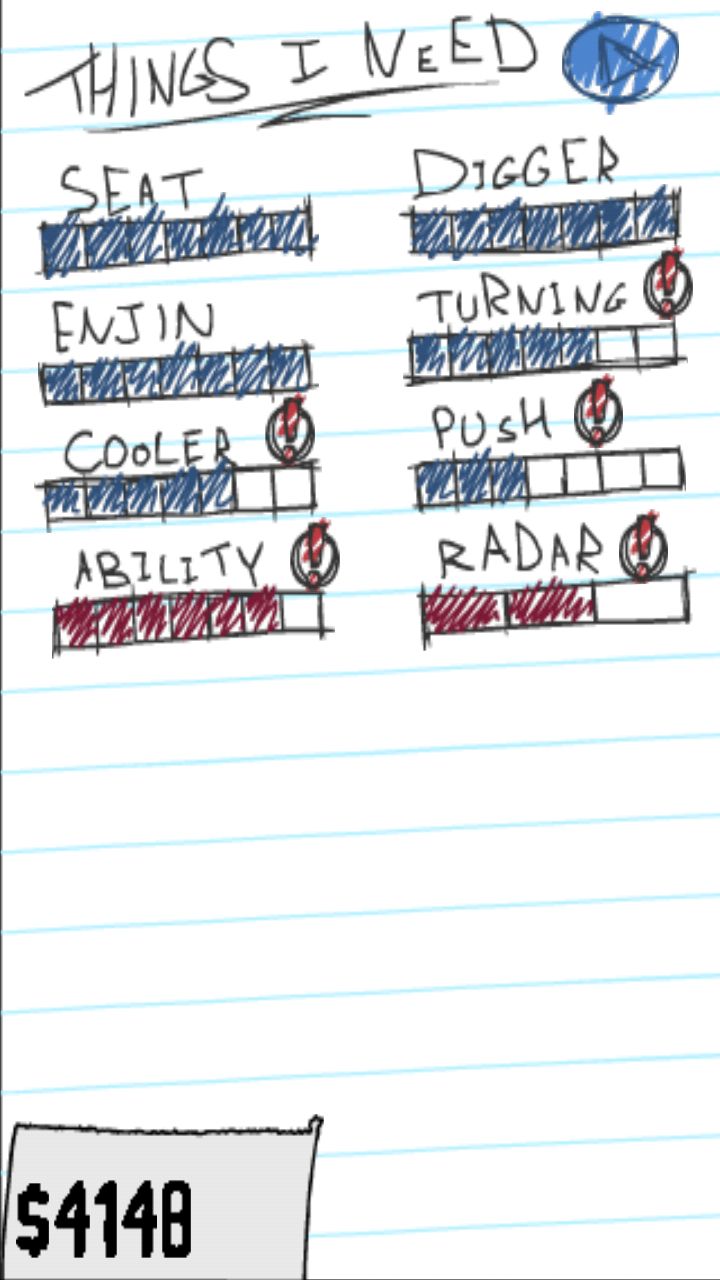 THINGS I NEED
SEAT
DIGGER
ENJIN
TURNING
COOLER
PUSH
ABILITY
RADAR
$4148